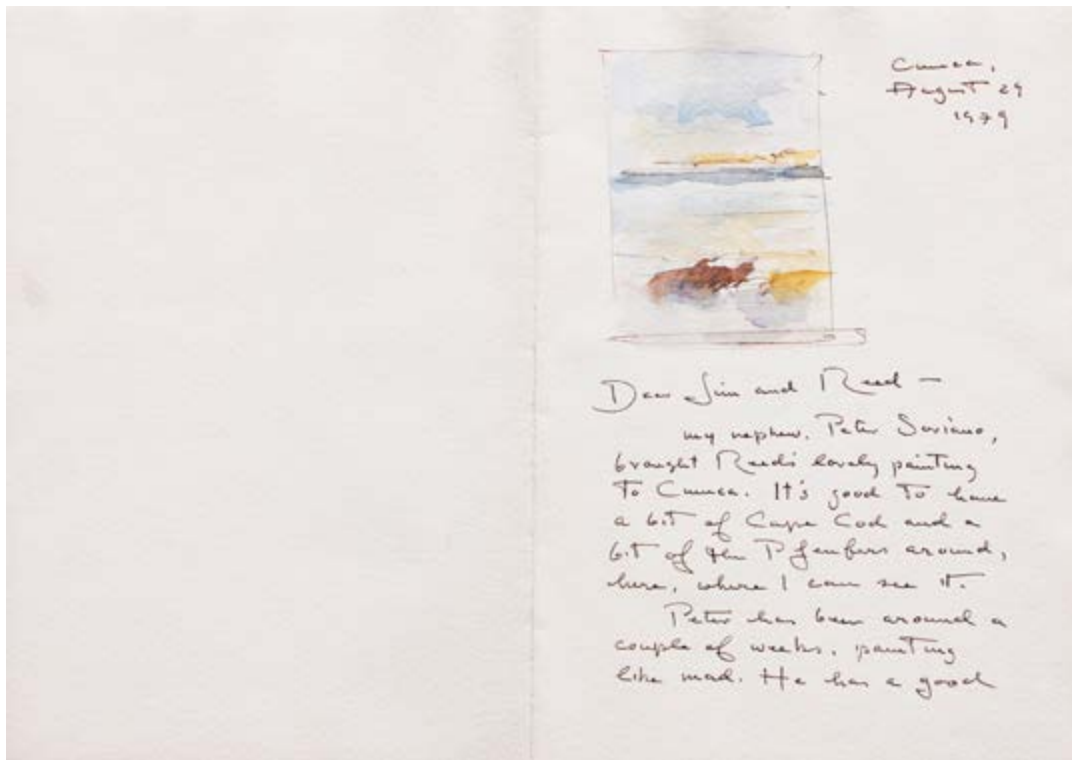 Cuenca,
August 29
1979
Dear Jim and Reed —
my nephew, Peter Soriano,
brought Reed's lovely painting
to Cuenca. It's good to have
a bit of Cape Cod and a
bit of the Pfeufers around,
here, where I can see it.
Peter has been around a
couple of weeks, painting
like mad. He has a good